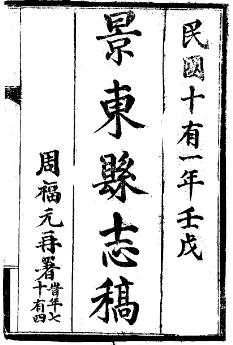 民國十有一年壬戌
景東縣志稿
周福元再署
時年七十有四